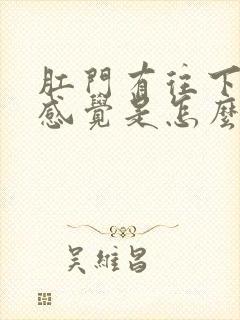 肛門有往下
感覺是怎麼
吴維昌